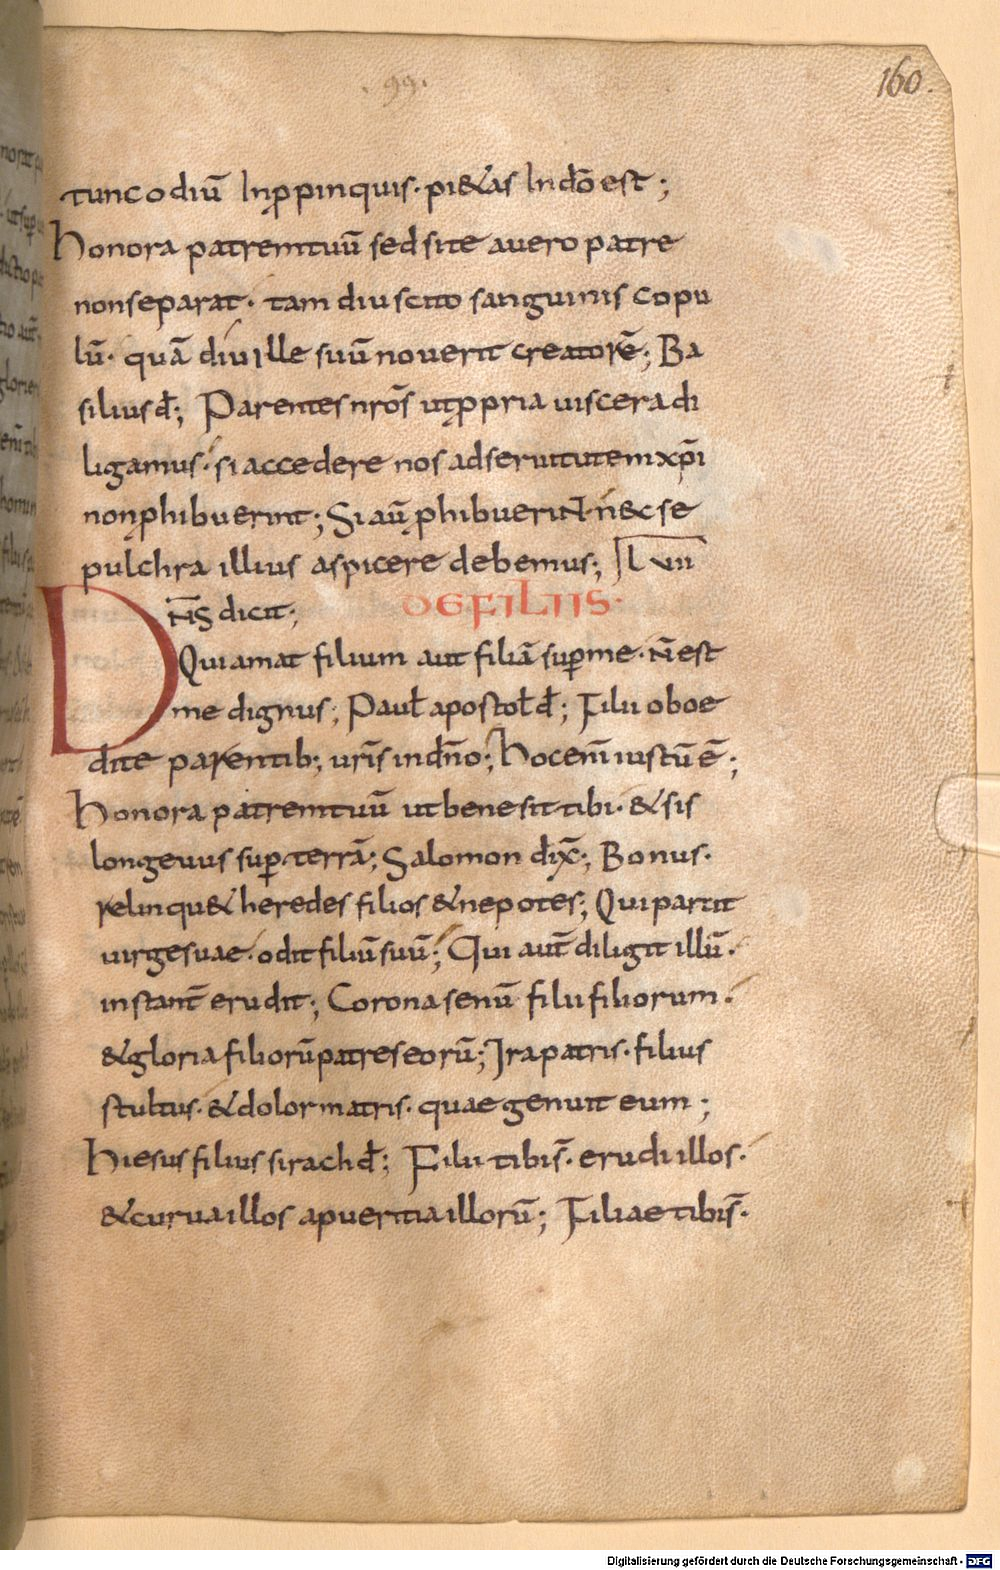 99.
160.
tunc odiū In ꝓpinquis · pi&as In dō est ;
honora patrem tuū sed si te a uero patre
non separat · tam diu scito sanguinis copu
lū · quā diu ille suū nouerit creatorē ; Ba
silius dꝉ ; Parentes nrōs ut ꝓpria uiscera di
ligamus · si accedere nos ad seruitutem xp̄i
non ꝓhibuerint ; Si aū ꝓhibuerint · nec se
pulchra illius aspicere debemus ; LVII
DN̄S dicit ; DE FILIIS ·
Qui amat filium aut filiā suꝑ me · n̄ est
me dignus ; Paulꝉ apostolꝉ dꝉ ; Filii oboe
dite parentib; urīs in dn̄o ; hoc enī iustū ē ;
honora patrem tuū ut bene sit tibi · & sis
longeuus suꝑ terrā ; Salomon dix̄ ; Bonus ·
relinqu& heredes filios & nepotes ; Qui parcit
uirge suae · odit filiū suū ; Qui aut̄ diligit illū ·
instant̄ erudit ; Corona senū filii filiorum ·
& gloria filiorū patres eorū ; Ira patris · filius
stultus · & dolor matris · quae genuit eum ;
hiesus filius sirach dꝉ ; Filii tibi s̄ · erudi illos ·
& curua illos a pueritia illorū ; Filiae tibi s̄ ·
Digitalisierung gefördert durch die Deutsche Forschungsgemeinschaft - DFG